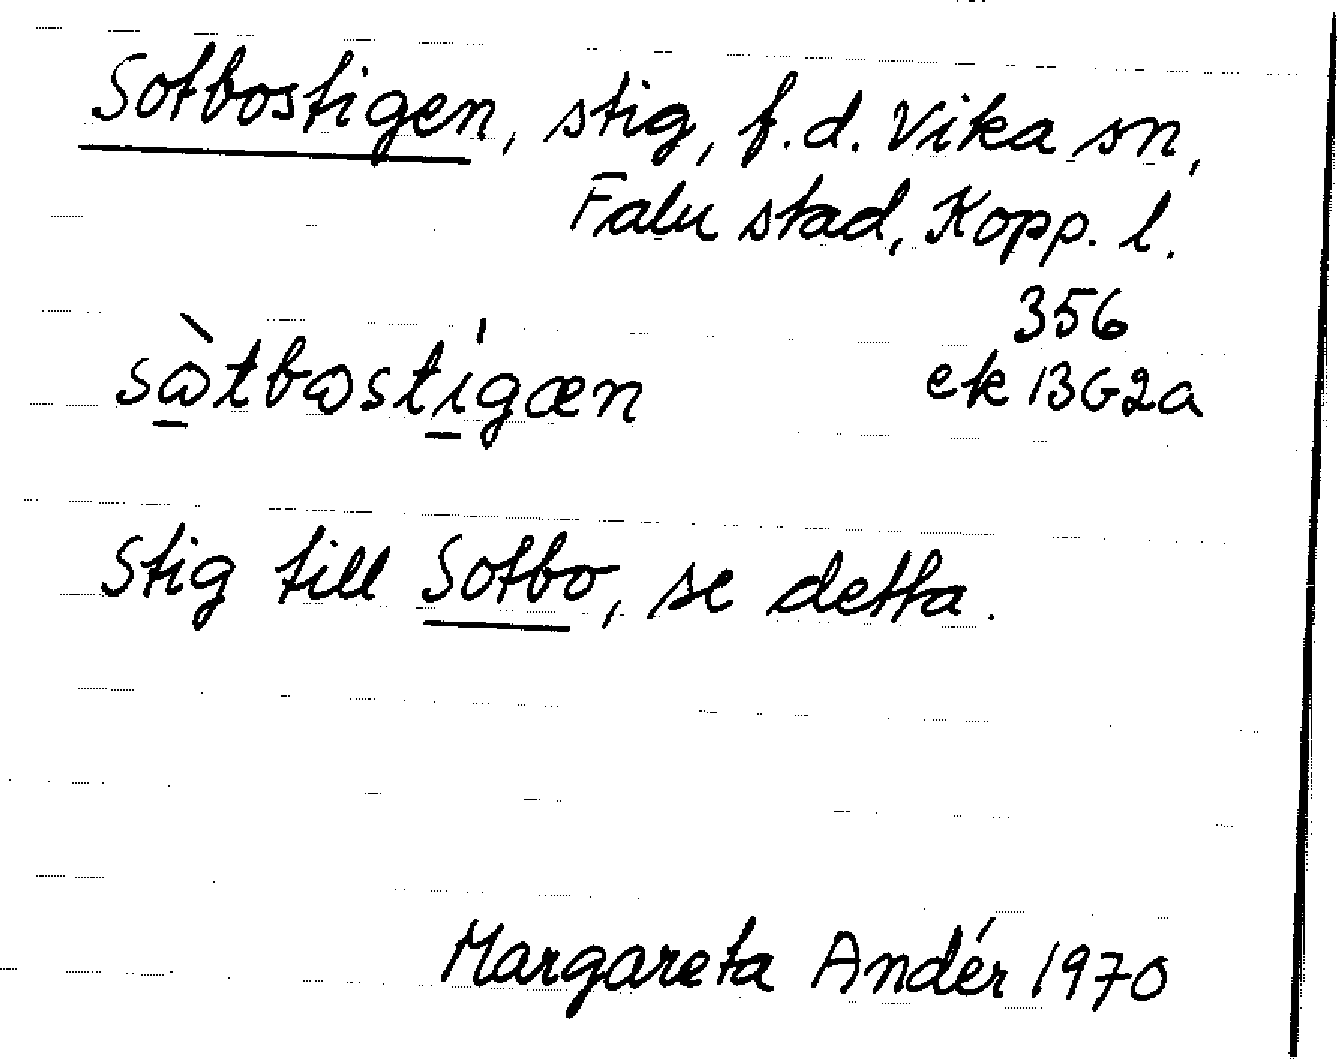 Sotbostigen, stig, f.d. Vika sn,
Falu stad, Kopp. l.
356
ek 13G2a
sὼtbωstígæn
Stig till Sotbo, se detta.
Margareta Andér 1970